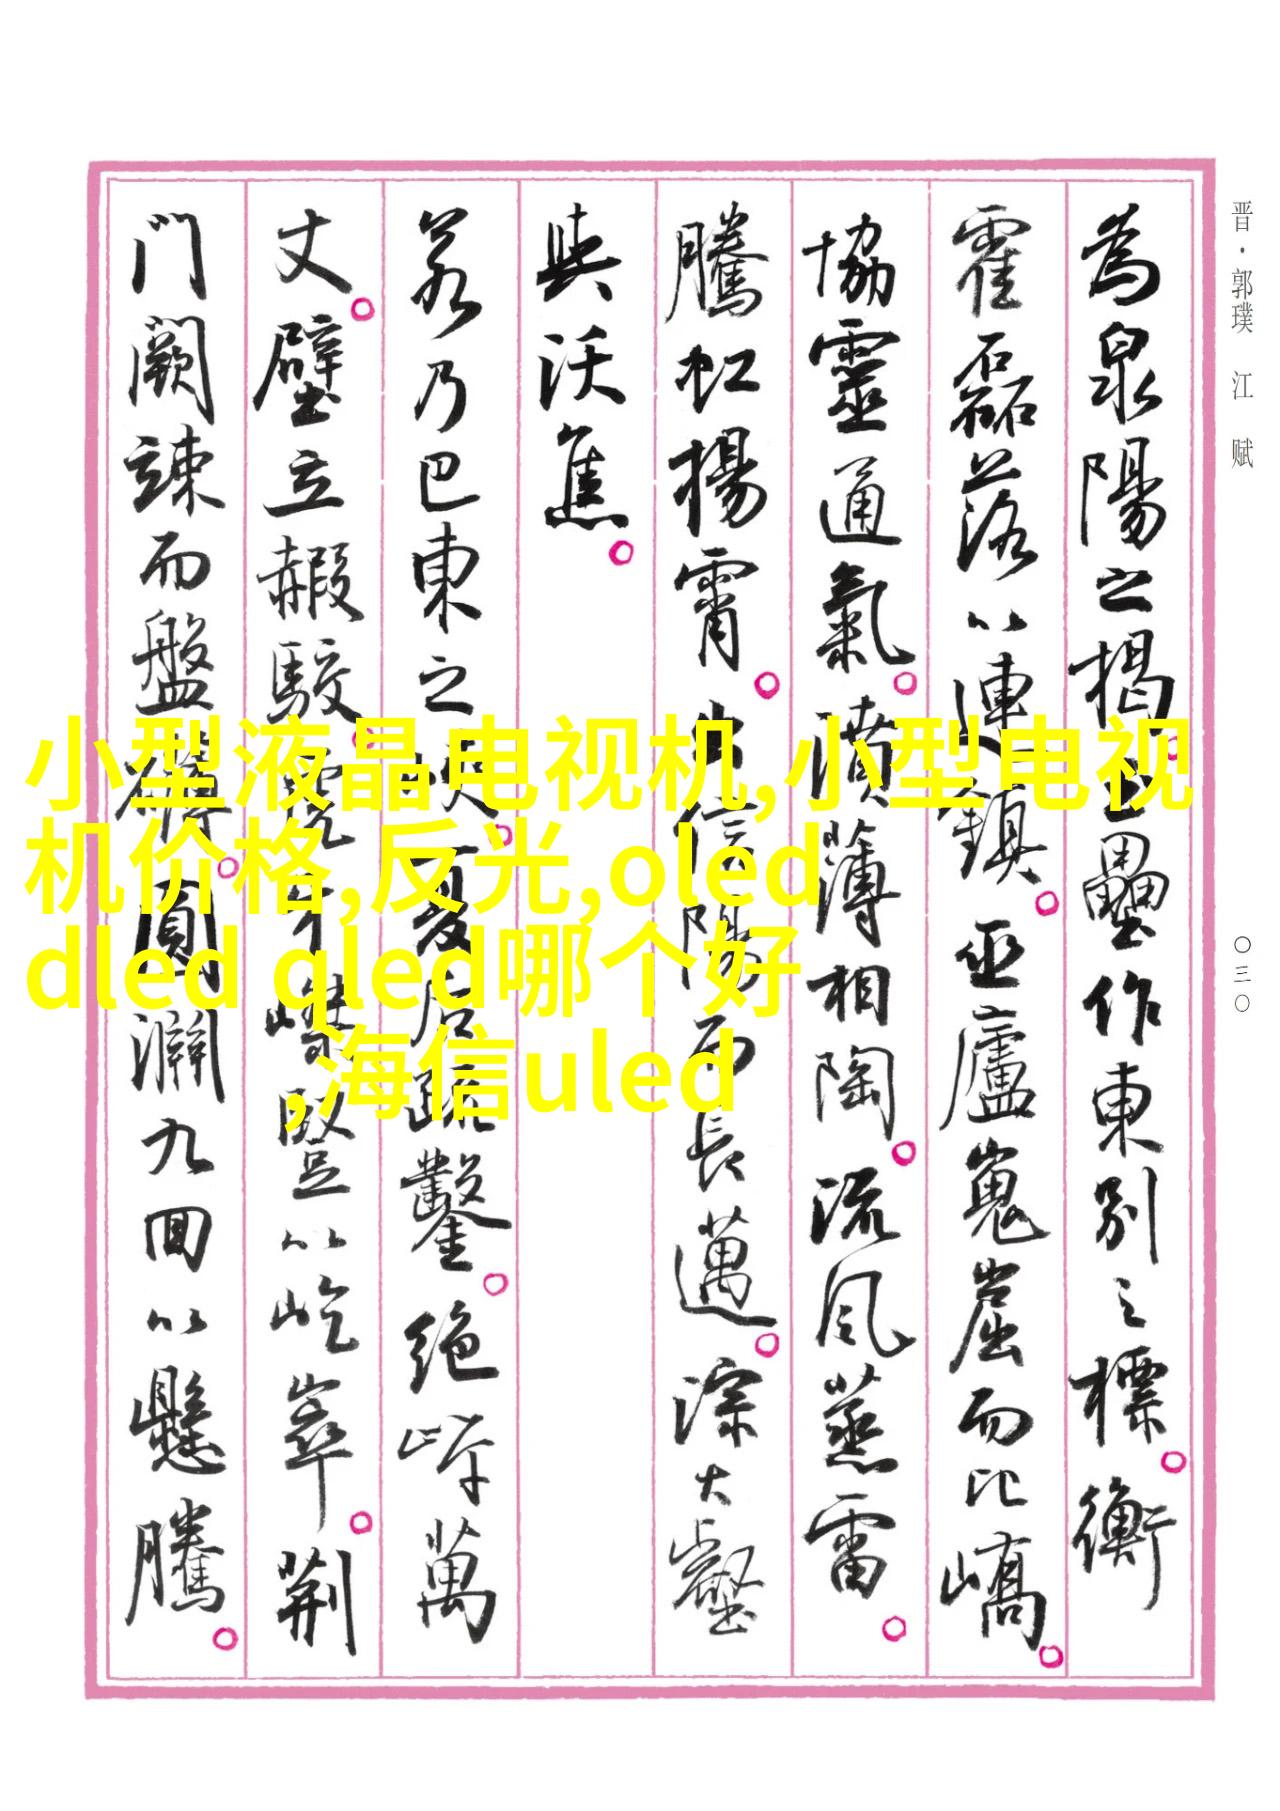 晋·郭璞 江 赋
〇三〇
為泉陽之揭 土壘作東别之標 衡
霍磊落以連鎮 巫廬嵬崫而比嶠
協靈通氣 濆薄相陶 流風蒸雷
騰虹揚霄 出信陽而長邁 淙大壑
與沃焦
若乃巴東之峽 夏后疏鑿 绝岸萬
丈 壁立赮駮 虎牙嵥竪以屹崒 荆
門闕竦而盤礴 圓淵九回以懸騰
小型液晶电视机,小型电视
机价格,反光,oled
dled qled哪个好
,海信uled